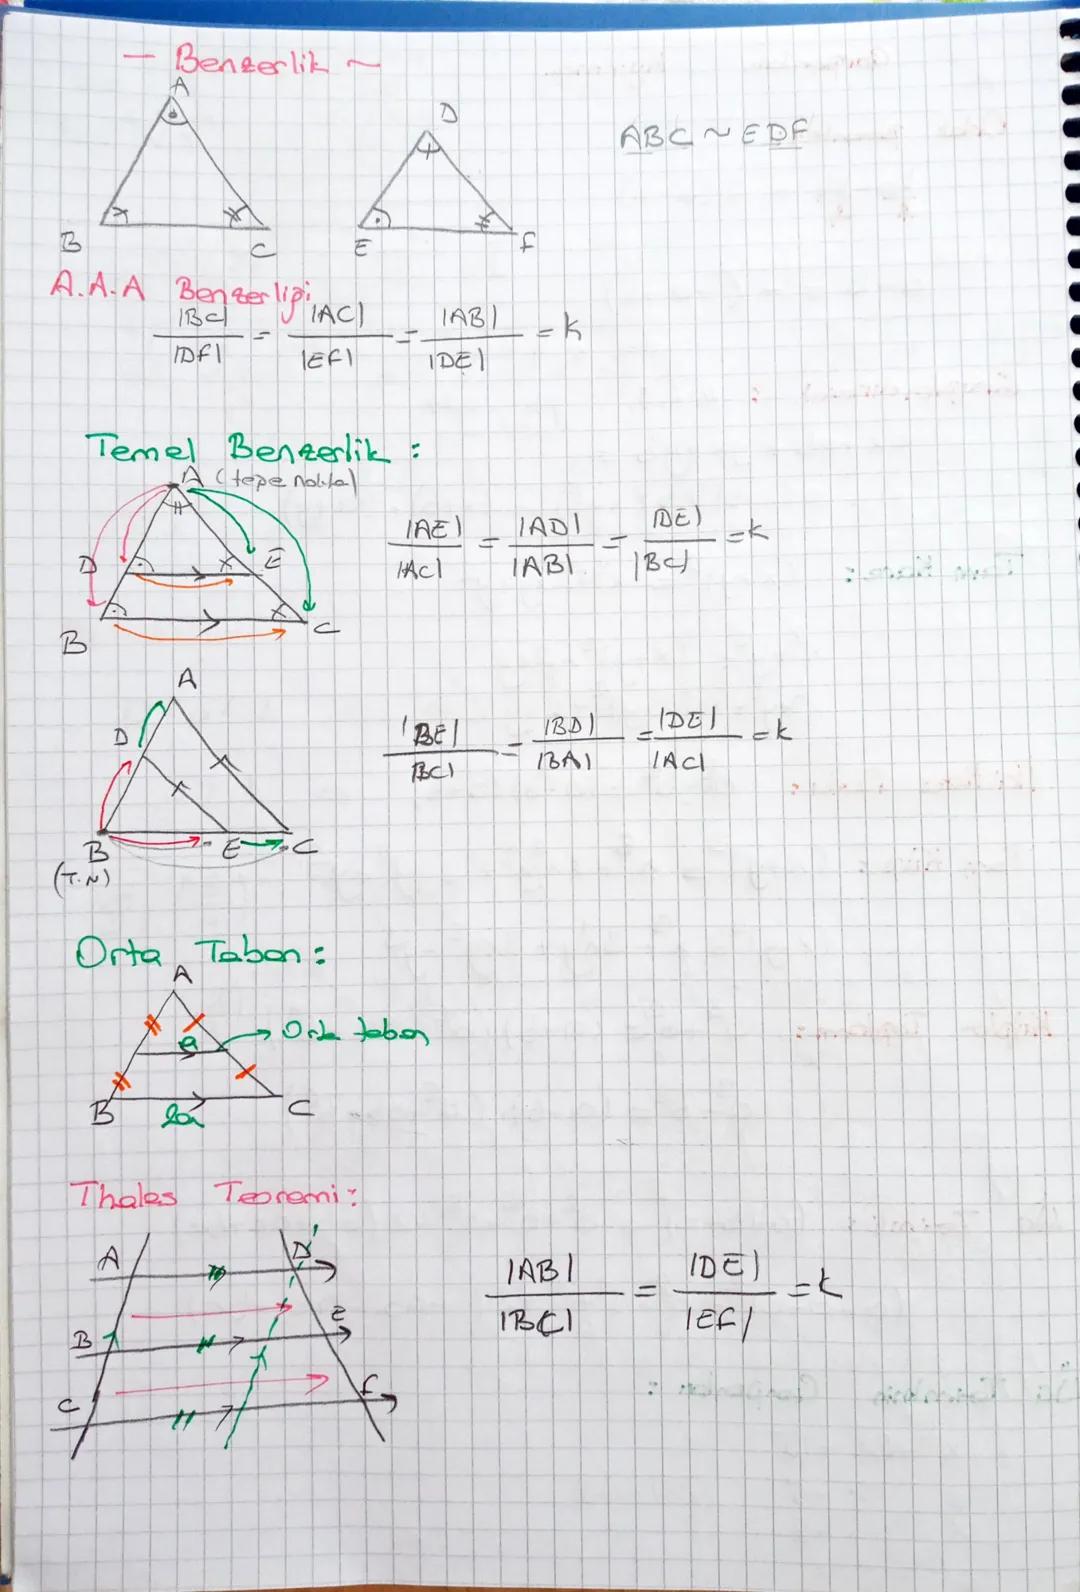 — Benzerlik ~
A
D
ABC ~ EDF
B
C
E
F
A.A.A Benzerliği
|BC| / |DF| = |AC| / |EF| = |AB| / |DE| = k
Temel Benzerlik :
A (tepe nokta)
D
E
|AE| / |AC| = |AD| / |AB| = |DE| / |BC| = k
B
C
A
D
|BE| / |BC| = |BD| / |BA| = |DE| / |AC| = k
B
E
C
(T.N)
Orta Taban :
A
a
→ Orta taban
B
2a
C
Thales Teoremi :
A
D
|AB| / |BC| = |DE| / |EF| = k
B
E
C
F